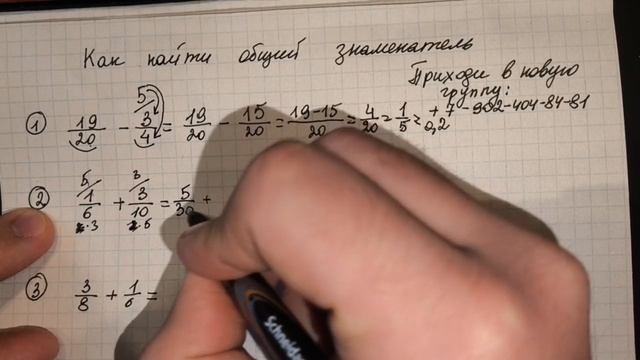 Как найти общий знаменатель
Приходи в новую
группу:
+7-902-404-84-81
5
1) 19/20 - 3/4 = 19/20 - 15/20 = 19-15/20 = 4/20 = 1/5 = 0,2
5 3
2) 1/6 + 3/10 = 5/30 +
2·3 2·5
3) 3/8 + 1/6 =
Schneider